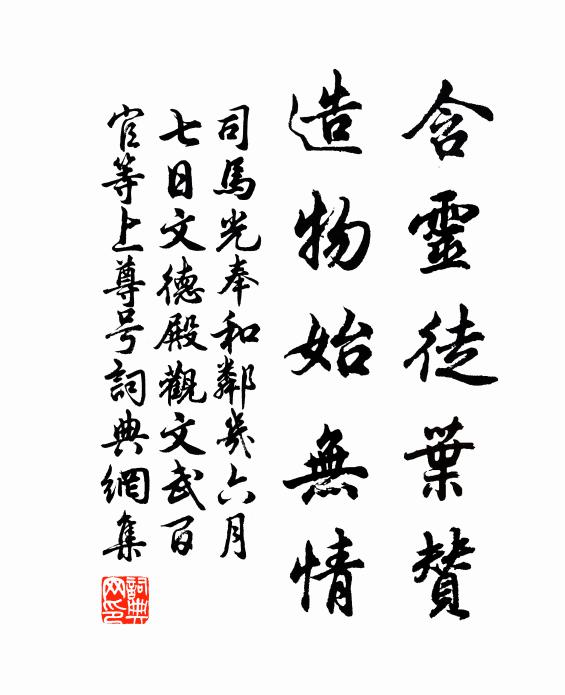 含靈徒葉贊
造物始無情
司馬光奉和鄰幾六月
七日文德殿觀文武百
官等上尊号詞典網集
詞典
网印